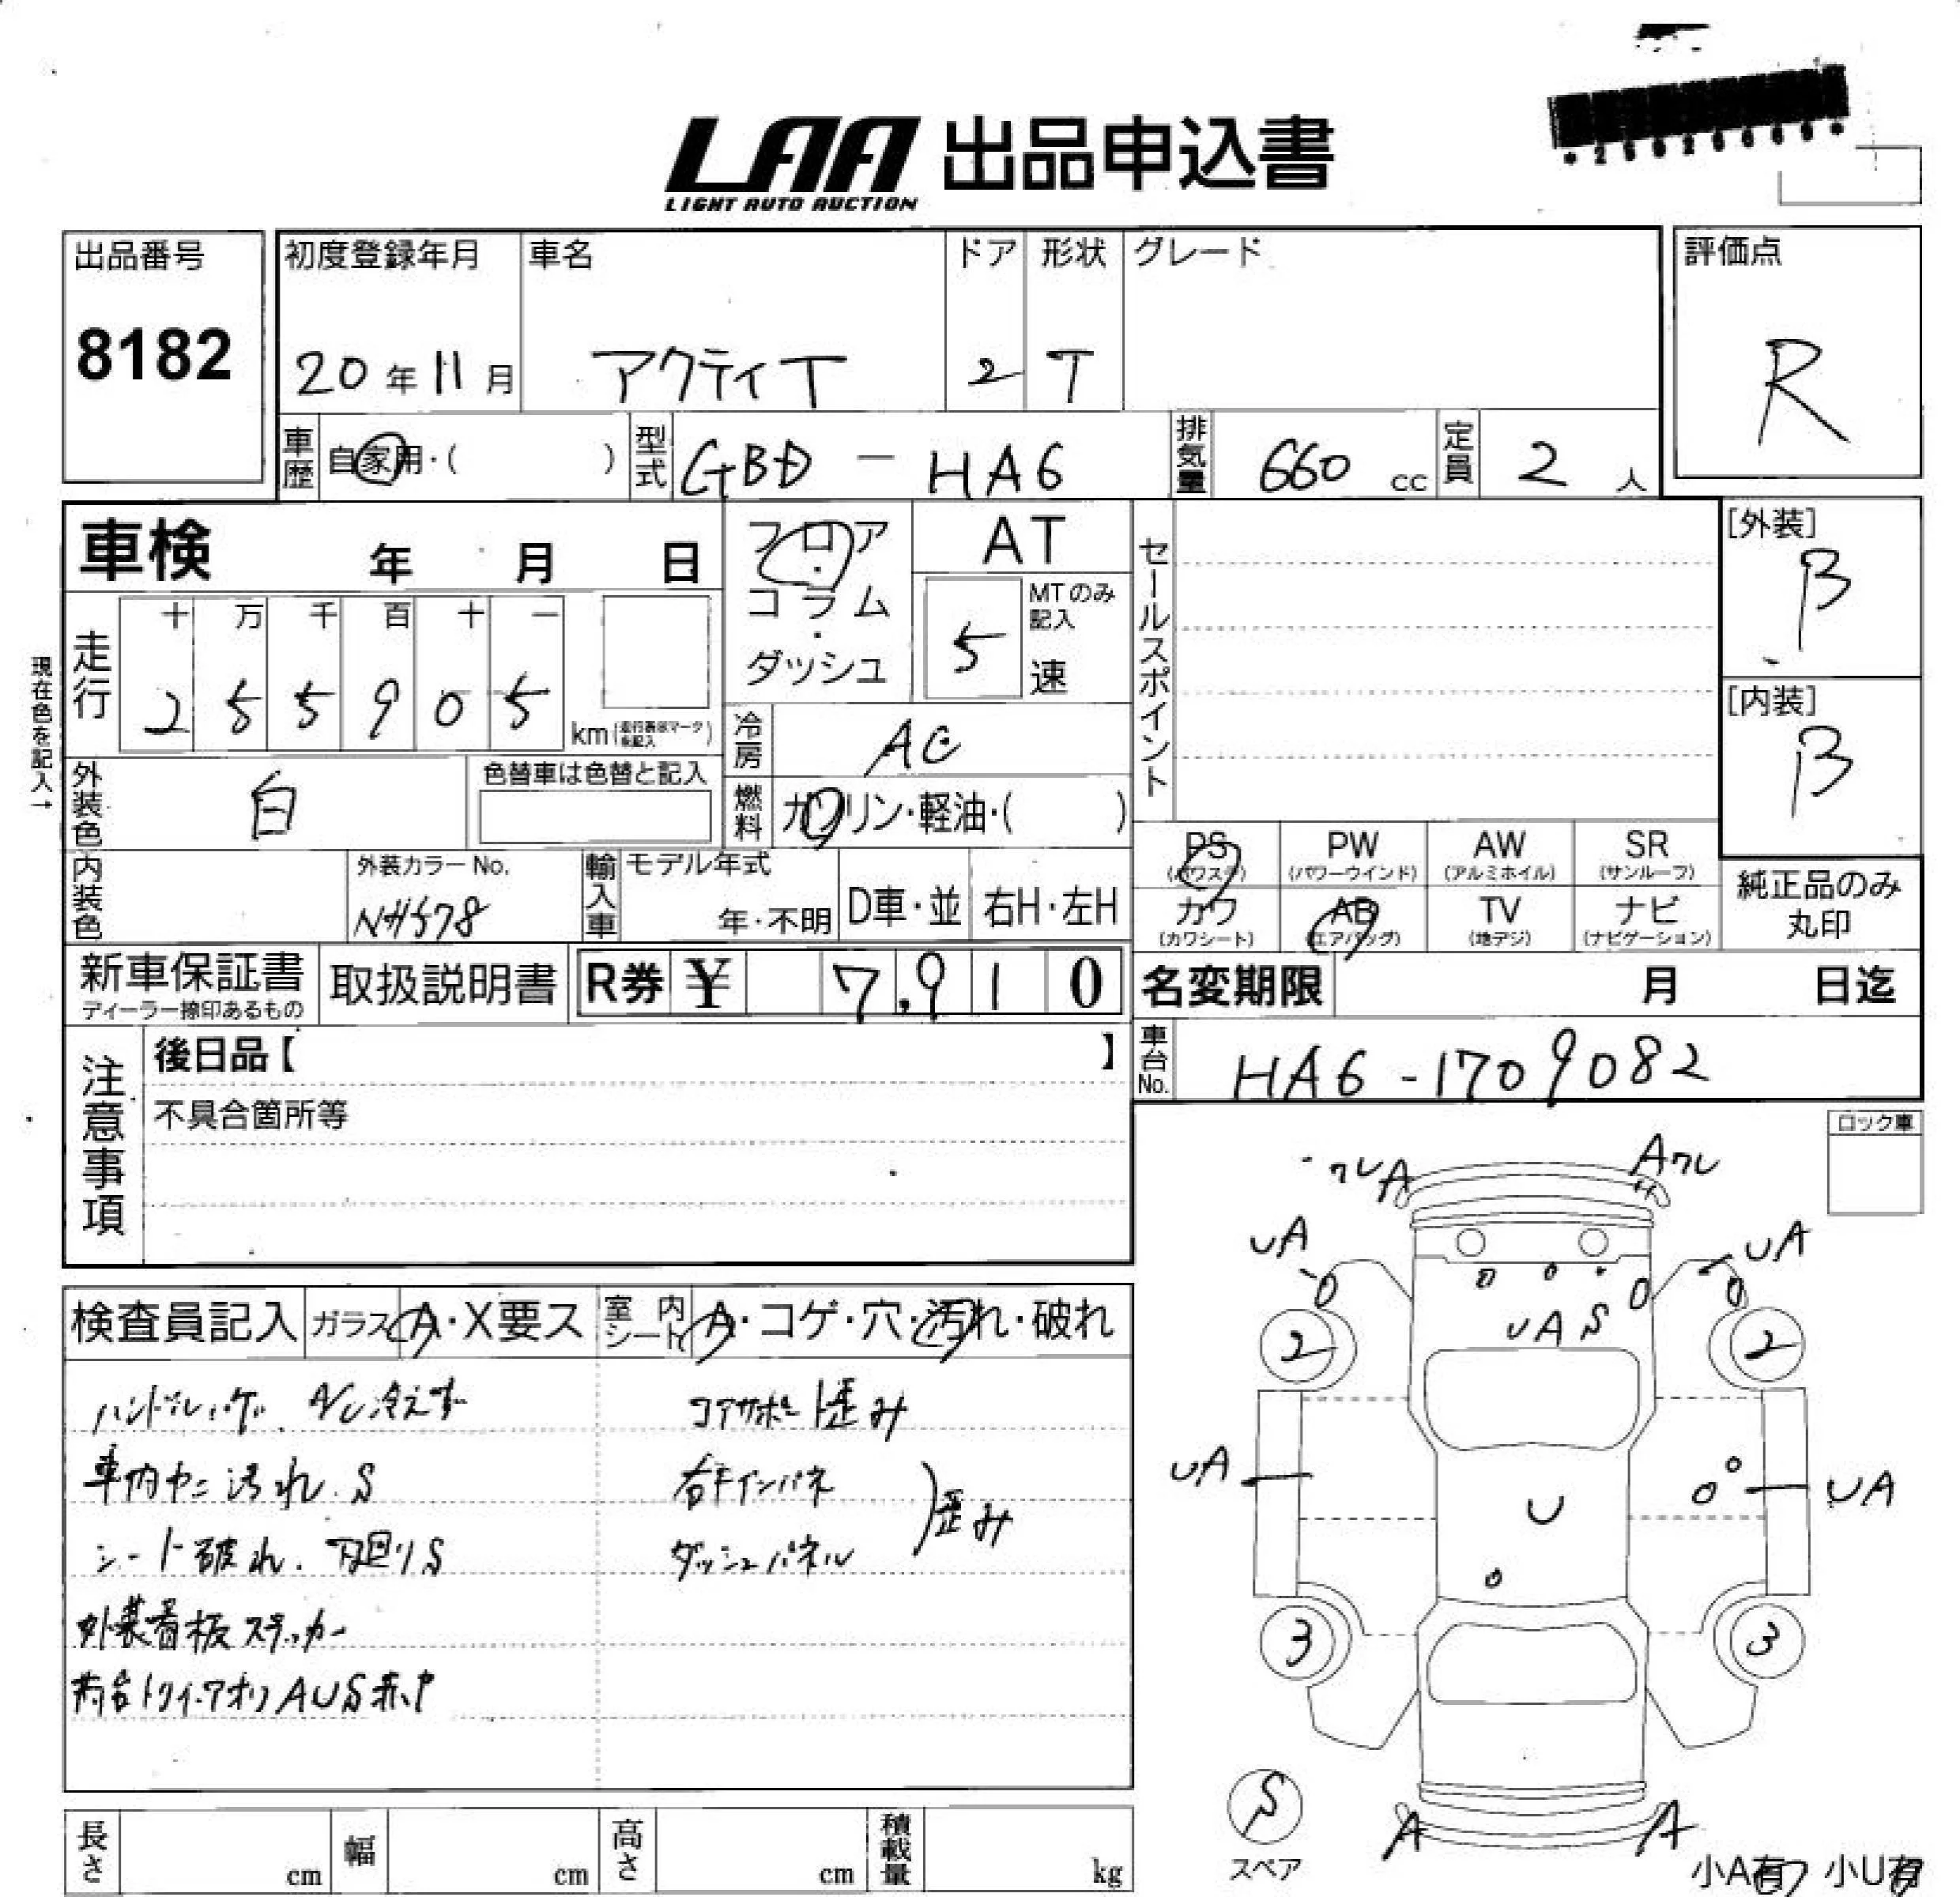 LAA 出品申込書
LIGHT AUTO AUCTION
出品番号
8182
初度登録年月
20年11月
車名
アクティT
ドア
2
形状
T
グレード
評価点
R
車歴
自家用・( )
型式
GBD - HA6
排気量
660 cc
定員
2 人
車検 年 月 日
フロア
・
コラム
・
ダッシュ
AT
MTのみ
記入
5 速
セールスポイント
[外装]
B
[内装]
B
現在色を記入→
走行
十 万 千 百 十 一
2 5 5 9 0 5
km
冷房
AC
外装色
白
色替車は色替と記入
燃料
ガソリン・軽油・( )
PS
(パワステ)
PW
(パワーウインド)
AW
(アルミホイル)
SR
(サンルーフ)
カワ
(カワシート)
AB
(エアバッグ)
TV
(地デジ)
ナビ
(ナビゲーション)
純正品のみ
丸印
内装色
外装カラーNo.
NH578
輸入車
モデル年式
年・不明
D車・並
右H・左H
新車保証書
ディーラー捺印あるもの
取扱説明書
R券 ¥ 7,910
名変期限 月 日迄
注意事項
後日品【 】
不具合箇所等
車台No.
HA6-1709082
ロック車
ワレA
Aワレ
UA
UA
UAS
2
2
UA
UA
U
3
3
検査員記入
ガラス
A・X要ス
室内
シート
A・コゲ・穴・汚れ・破れ
A/C冷えず
コアサポート歪み
車内中ニ汚れ.S
右手インパネ
歪み
シート破れ.下回りS
ダッシュパネル
外装看板ステッカー
荷台トリイ・アオリAUS
S
スペア
A
A
小A有 小U有
長さ
cm
幅
cm
高さ
cm
積載量
kg